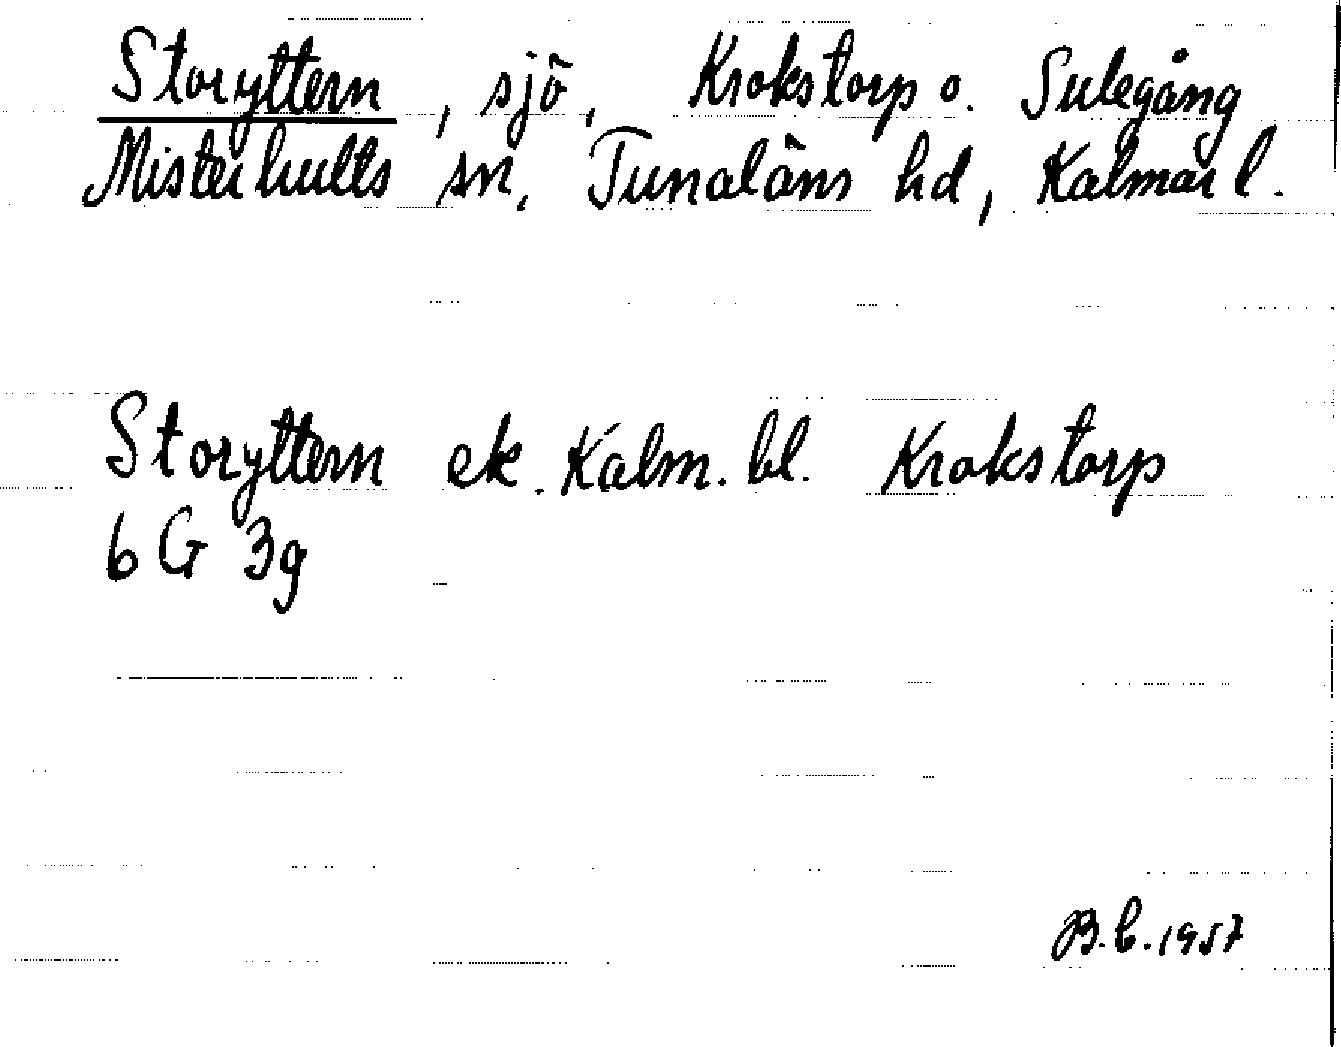 Storyttern, sjö, Krokstorp o. Sulegång
Misterhults sn, Tunaläns hd, Kalmar l.
Storyttern ek. Kalm. bl. Krokstorp
6 G 3g
B.b.1957